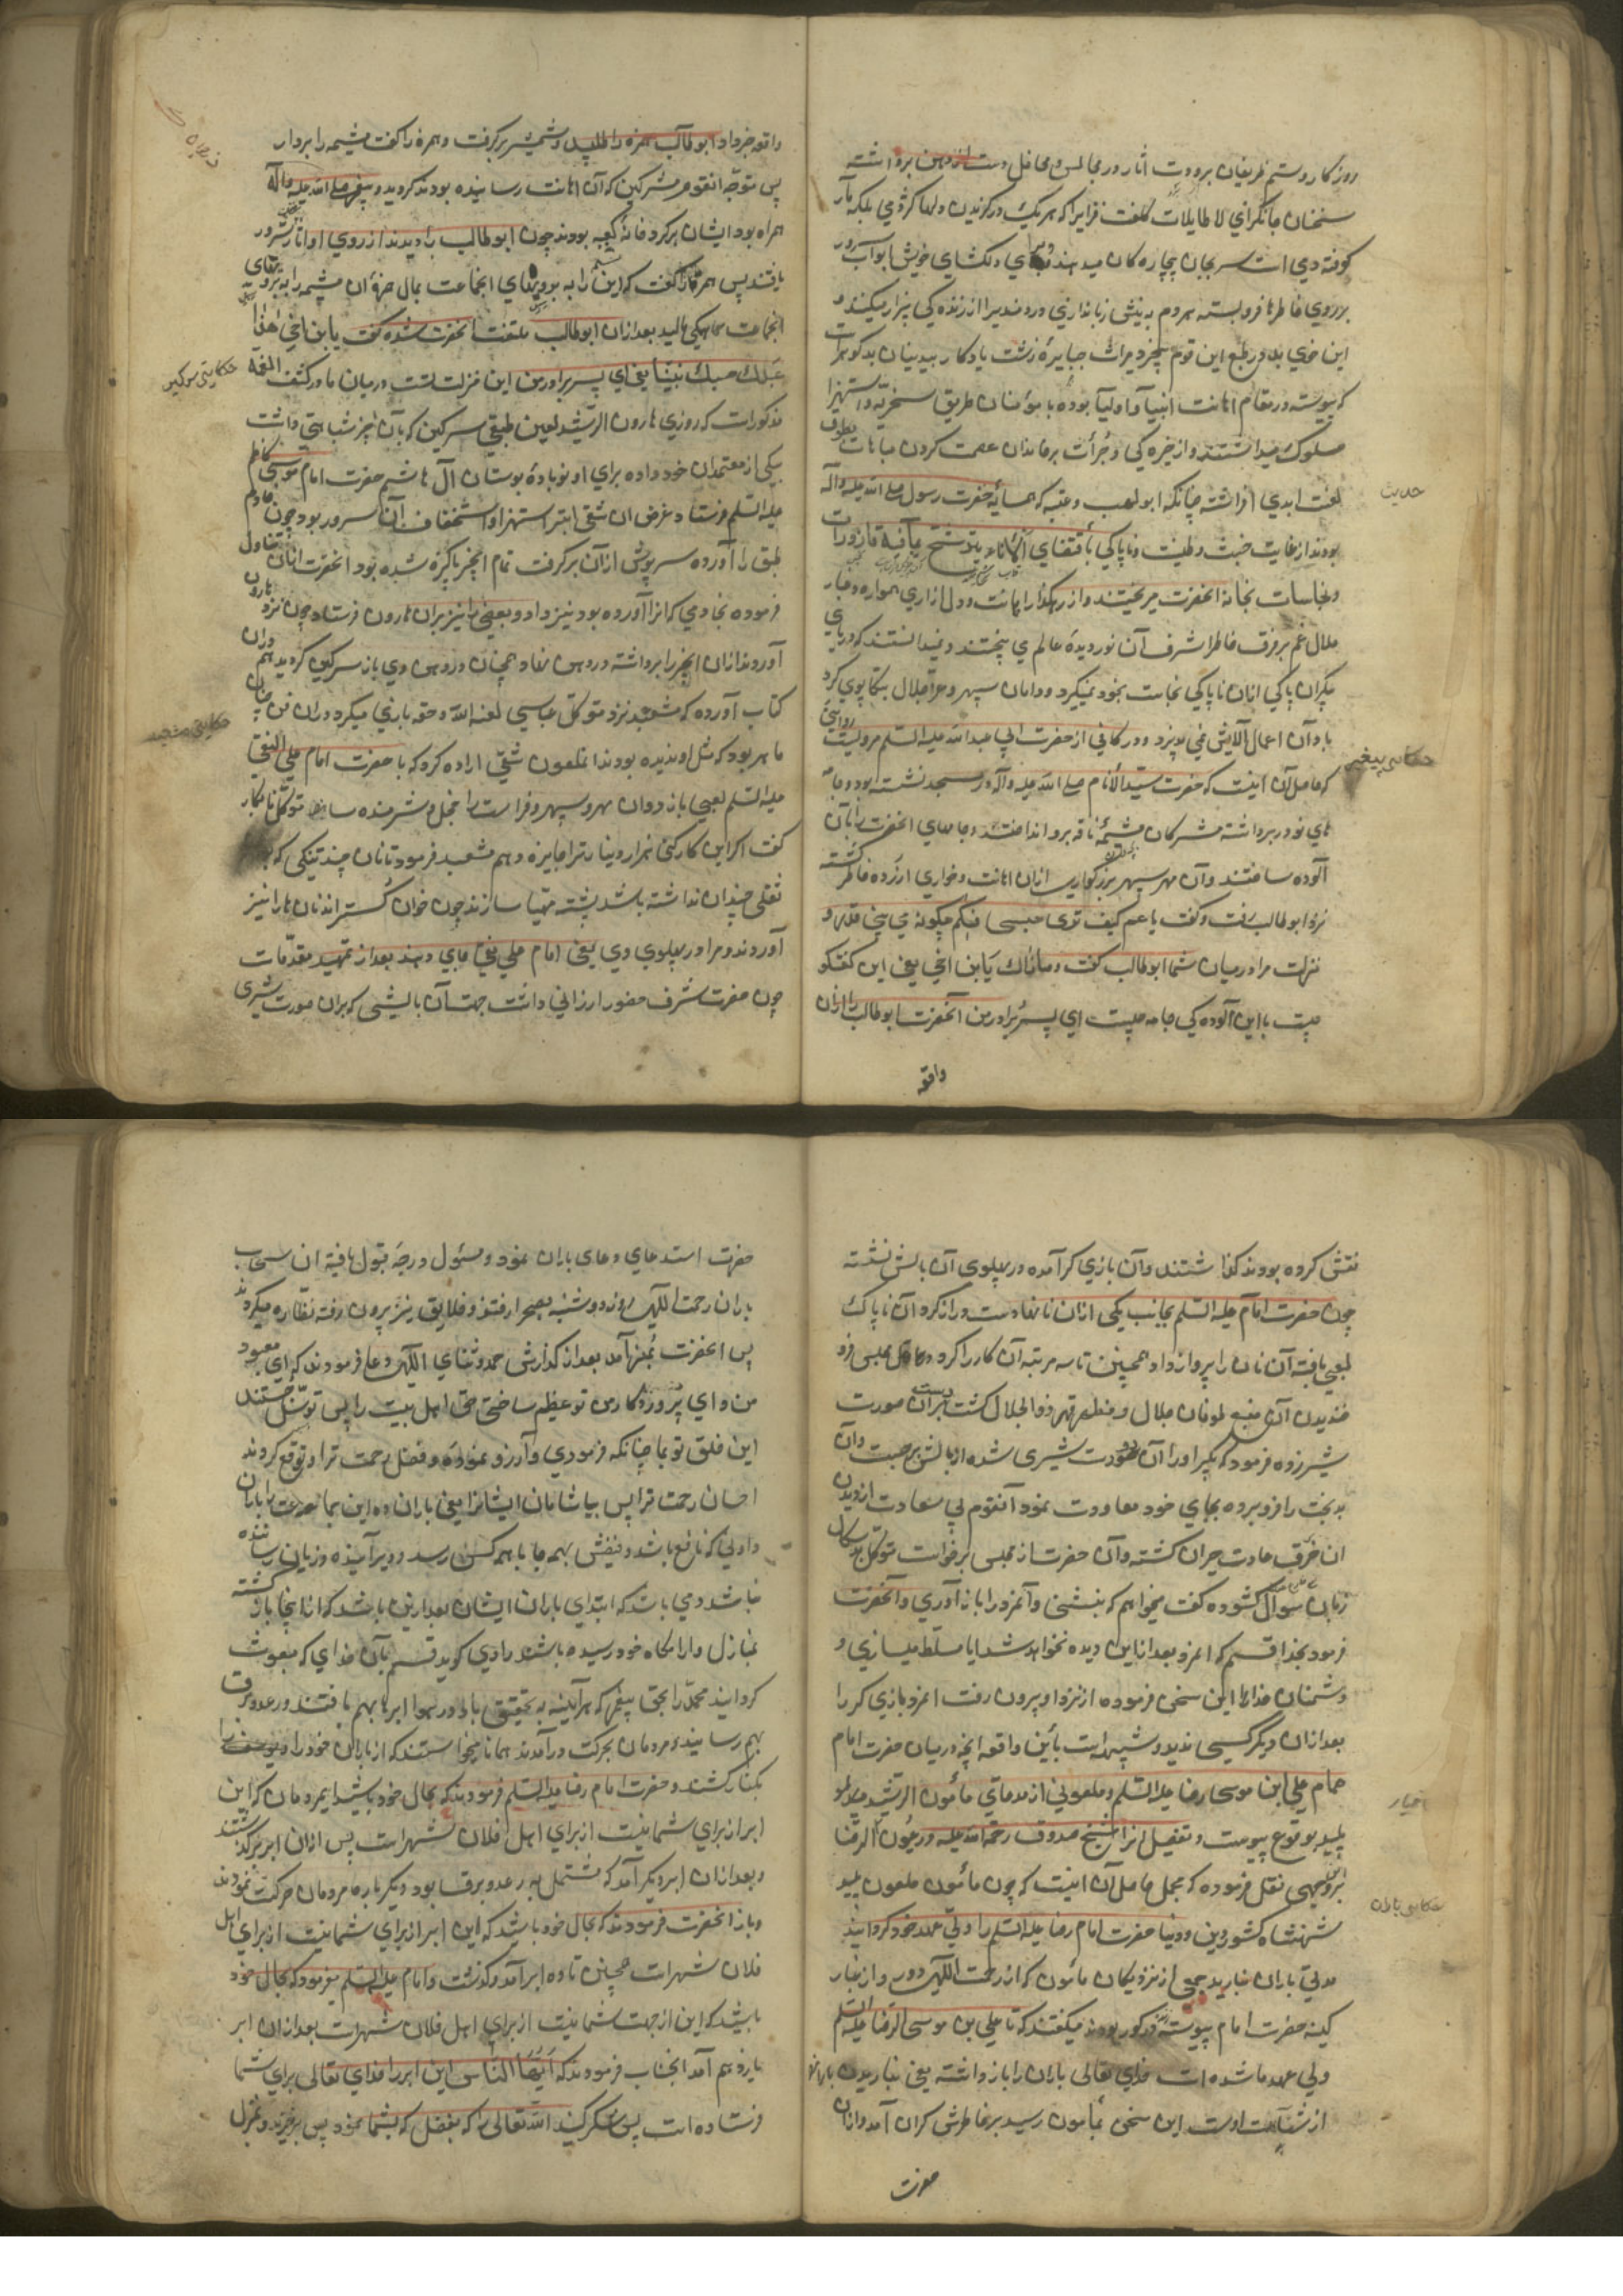 روزکار وستم ظریفان بر ودت اثار در مجالس و محافل دست از دهن برداشته
سخنان جانکزای لا طایلات کلفت فزایرا که هر یک در کزیدن دلها کژدمی بلکه مار
کوفته دمی است سر بجان بیچاره کان میدهند و درهای دلکشای خویش ابواب سرور
بر روی خاطرها فرو بسته مردم به نیش زبانداری دردمندیرا از زنده کی بیزار میکنند و
این خوی بد در طبع این قوم بیخرد میراث جبابیره زشت یادکار بیدینان بدکوهر است
که پیوسته در مقام اهانت انبیا و اولیا بوده با مؤمنان طریق سخریه و استهزا
مسلوک میداشتند و از خیره کی و جرأت بر خاندان عصمت کردن مباهات بطوق
لعنت ابدی افراشته چنانکه ابو لهب و عتبه که همسایه حضرت رسول صلی الله علیه وآله
بودند از غایت خبث طینت و ناپاکی باقتضای الاناء یترشح بما فیه قازورات
و نجاسات بخانه انحضرت میریختند و از رهکذار اهانت و دل ازاری همواره غبار
ملال غم بر فرق خاطر اشرف آن نور دیده عالم می بیختند و نمیدانستند که دریای
بیکران پاکی ازان ناپاکی نجاست بخود نمیکیرد و دامان سپهر عز و جلال بتکاپوی کرد
باد آن اعمال آلایش نمی پذیرد و در کافی از حضرت ابی عبدالله علیه السلم مرویست روایتی
که حاصل آن اینست که حضرت سید الانام صلی الله علیه وآله در مسجد نشسته بود و جامه
های نو در بر داشته مشرکان مشیمه ناقه بر او انداختند و جامهای انحضرت را بآن
آلوده ساختند و آن مهر سپهر بزرکواری ازان اهانت و خواری ازرده خاطر کشته
نزد ابو طالب رفت و کفت یا عم کیف تری حسبی فیکم چکونه می بینی قدر و
منزلت مرا در میان شما ابو طالب کفت و ما ذاک یابن اخی یعنی این کفتکو
چیست با این آلوده کی جامه چیست ای پسر برادر من انحضرت ابو طالب را ازان
واقعه
حدیث
حکایت پیغمبر
واقعه خبر داد ابو طالب حمزه را طلبید و شمشیر برکرفت و حمزه را کفت مشیمه را بردار
پس متوجه انقوم مشرکین که آن اهانت رسانیده بودند کردید و پیغمبر صلی الله علیه وآله
همراه بود ایشان بر کرد خانه کعبه بودند چون ابو طالب را دیدند از روی او اثار شر در
یافتند پس حمزه را کفت که این را به بروتهای انجماعت بمال حمزه ان مشیمه را به بروتهای
انجماعت همکی مالید بعد ازان ابو طالب ملتفت انحضرت شده کفت یابن اخی هذا
حسبک فینا یعنی ای پسر برادر من این منزلت تست در میان ما در کشف الغمه
مذکور است که روزی هارون الرشید لعین طبقی سرکین که بآن انجیر شباهتی داشت
بیکی از معتمدان خود داده برای او نوباده بوستان آل هاشم حضرت امام موسی کاظم
علیه السلم فرستاد و غرض ان شقی ابتر استهزا و استخفاف آن سرور بود چون خادم
طبق را آورده سرپوش ازان برکرفت تمام انجیر پاکیزه شده بود انحضرت ازان تناول
فرموده بخادمی که انرا آورده بود نیز داد و بعضی را نیز بران هارون فرستاد چون نزد هارون
آوردند ازان انجیر را برداشته در دهن نهاد همچنان در دهن وی باز سرکین کردید هم دران
کتاب آورده که مشعبد نزد متوکل عباسی لعنه الله حقه بازی میکرد و دران فن چنان
ماهر بود که مثل او ندیده بودند انملعون شقی اراده کرد که با حضرت امام علی النقی
علیه السلم لعبی بازد و ان مهر سپهر فراست را خجل و شرمنده سازد متوکل نابکار
کفت اکر این کار کنی هزار دینار ترا جایزه دهم مشعبد فرمود تا نان چند تنکی که
ثقلی چندان نداشته باشد پخته مهیا سازند چون خوان کستر اند نان ها را نیز
آوردند و مرا در پهلوی وی یعنی امام علی نقی جای دهند بعد از تمهید مقدمات
چون حضرت شرف حضور ارزانی داشت جهت آن بالشی که بران صورت شیری
حکایتی سرکین
حکایتی مشعبد
نقش کرده بودند کذاشتند و آن بازی کر آمده در پهلوی آن بالش نشسته
چون حضرت امام علیه السلم بجانب یکی ازان نانها دست دراز کرد آن ناپاک
لعبی بافته آن نان را پرواز داد و همچنین تا سه مرتبه آن کار را کرد و اهل مجلس فرو
خندیدن آن منبع طوفان جلال و مظهر قهر ذو الجلال کشت دست بران صورت
شیر زده فرمود که بکیر او را آن صورت شیری شده از بالش برجست و آن
بدبخت را فرو برده بجای خود معاودت نمود آنقوم بی سعادت از دیدن
ان خرق عادت حیران کشته و آن حضرت از مجلس برخواست متوکل بد سکال
زبان سوال کشوده کفت میخواهم که بنشینی و آنمرد را باز آوری و آنحضرت
فرمود بخدا قسم که انمرد بعد ازین دیده نخواهد شد ایا مسلط میسازی
دشمنان خدا را این سخن فرموده از نزد او بیرون رفت انمرد بازی کر را
بعد ازان دیکر کسی ندید و شبیه است باین واقعه انچه در میان حضرت امام
همام علی ابن موسی رضا علیه السلم و ملعونی از ندمای مأمون الرشید
پلید بوقوع پیوست و تفصیل انرا شیخ صدوق رحمة الله علیه در عیون الرضا
بر وجهی نقل فرموده که مجمل حاصل آن اینست که چون مأمون ملعون پلید
شهنشاه کشور دین و دنیا حضرت امام رضا علیه السلم را ولی عهد خود کردانید
مدتی باران نبارید جمعی از نزدیکان مأمون که از رحمت اللهی دور و از غبار
کینه حضرت امام پیوسته کور بودند میکفتند که تا علی بن موسی الرضا علیه السلم
ولی عهد ما شده است خدای تعالی باران را باز داشته یعنی نباریدن باران
از شئامت اوست این سخن بمأمون رسید بر خاطرش کران آمد و ازان
حضرت
اخبار
حکایتی باران
حضرت استدعای دعای باران نمود و مسئول درجه قبول یافته ان سحاب
باران رحمت اللهی روز دوشنبه بصحرا رفتند و خلایق نیز بیرون رفته نظاره میکردند
پس انحضرت بمنبر آمد بعد از کذارش حمد و ثنای اللهی دعا فرمودند که ای معبود
من و ای پروردکار من تو عظیم ساختی حق اهل بیت را پس توسل جستند
این خلق تو بما چنانکه فرمودی و آرزو نموده و فضل رحمت ترا و توقع کردند
احسان رحمت ترا پس بیاشامان ایشانرا یعنی باران ده این جماعت را باران
دادنی که نافع باشد و نفعش بهمه جا با همه کس رسد و دیر آینده و زیان رساننده
نباشد و می باشد که ابتدای باران ایشان بعد ازین باشد که از اینجا باز کشته
بمنازل و ارامکاه خود رسیده باشند راوی کوید قسم بآن خدای که مبعوث
کردانید محمد را بحق پیغمبر که هرآینه به تحقیق باد در هوا ابرها بهم بافتند و رعد و برق
بهم رسانید و مردمان بحرکت درآمدند همانا میخواستند که از باران خود را
بکنار کشند و حضرت امام رضا علیه السلم فرمودند که بحال خود باشید ایمردمان که این
ابر از برای شما نیست از برای اهل فلان شهر است پس ازان ابر برکذشتند
و بعد ازان ابر دیکر آمد که مشتمل به رعد و برق بود دیکر باره مردمان حرکت نمودند
و باز انحضرت فرمودند که بحال خود باشید که این ابر از برای شما نیست از برای اهل
فلان شهر است همچنین تا ده ابر آمد و کذشت و امام علیه السلم میفرمود که بحال خود
باشید که این از جهت شما نیست از برای اهل فلان شهر است بعد ازان ابر
یازدهم آمد انجناب فرمودند که ایها الناس این ابر را خدای تعالی برای شما
فرستاده است پس شکر کنید الله تعالی را که بفضل که بشما نمود پس برخیزید و بمنزل